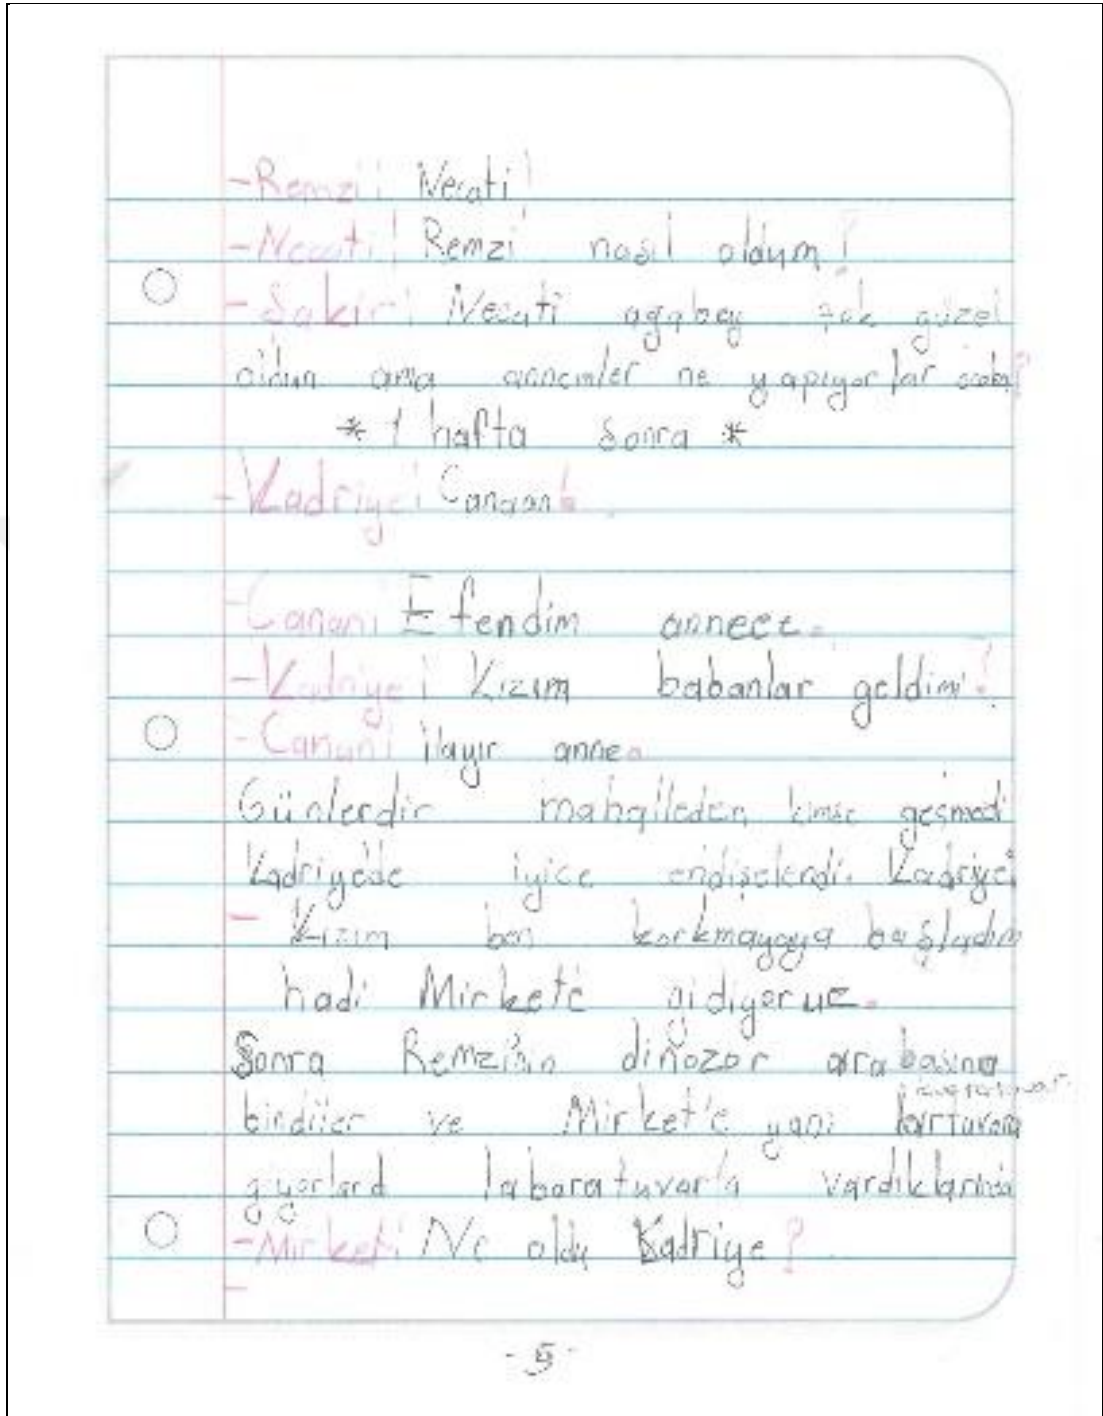 -Remzi: Necati!
-Necati: Remzi nasıl oldum?
-Şakir: Necati ağabey çok güzel
oldun ama annemler ne yapıyorlar acaba?
* 1 hafta sonra *
-Kadriye: Canaan!
-Canan: Efendim annece.
-Kadriye: Kızım babanlar geldimi?
-Canan: Hayır anne.
Günlerdir mahalleden kimse geşmedi
Kadriyede iyice endişelendi. Kadriye:
- Kızım ben korkmayaya başladım
hadi Mirket'e gidiyoruz.
Sonra Remzi'nin dinozor arabasına
bindiler ve Mirket'e yani
giyorlard labaratuvar'a vardıklarında
-Mirket: Ne oldu Kadriye?
-
- 5 -